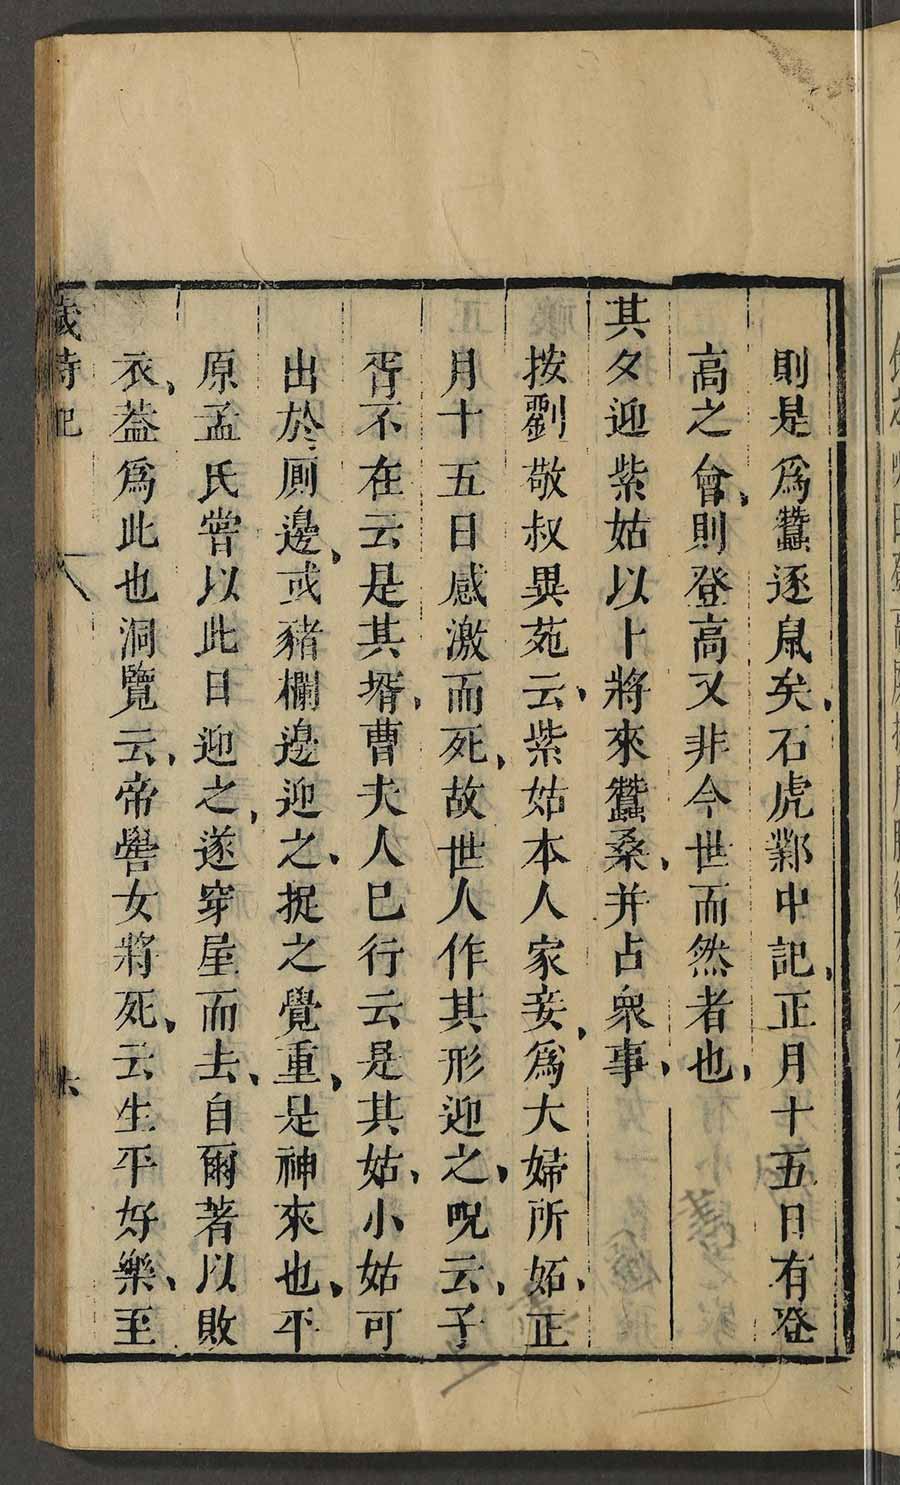 則是爲蠶逐鼠矣石虎鄴中記正月十五日有登
高之會則登高又非今世而然者也
其夕迎紫姑以卜將來蠶桑并占衆事
按劉敬叔異苑云紫姑本人家妾爲大婦所妬正
月十五日感激而死故世人作其形迎之呪云子
胥不在云是其壻曹夫人已行云是其姑小姑可
出於厠邊或豬欄邊迎之捉之覺重是神來也平
原孟氏嘗以此日迎之遂穿屋而去自爾著以敗
衣葢爲此也洞覽云帝嚳女將死云生平好樂至
歲時記
六